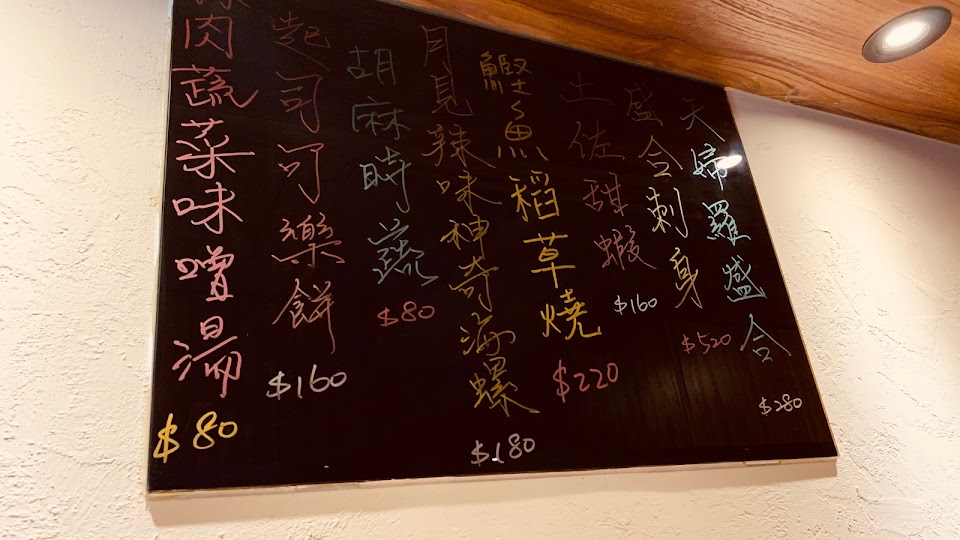 天婦羅盛合
$280
盛合刺身
$520
土佐甜蝦
$160
鰹魚稻草燒
$220
月見辣味神奇海螺
$180
胡麻時蔬
$80
起司可樂餅
$160
肉蔬菜味噌湯
$80